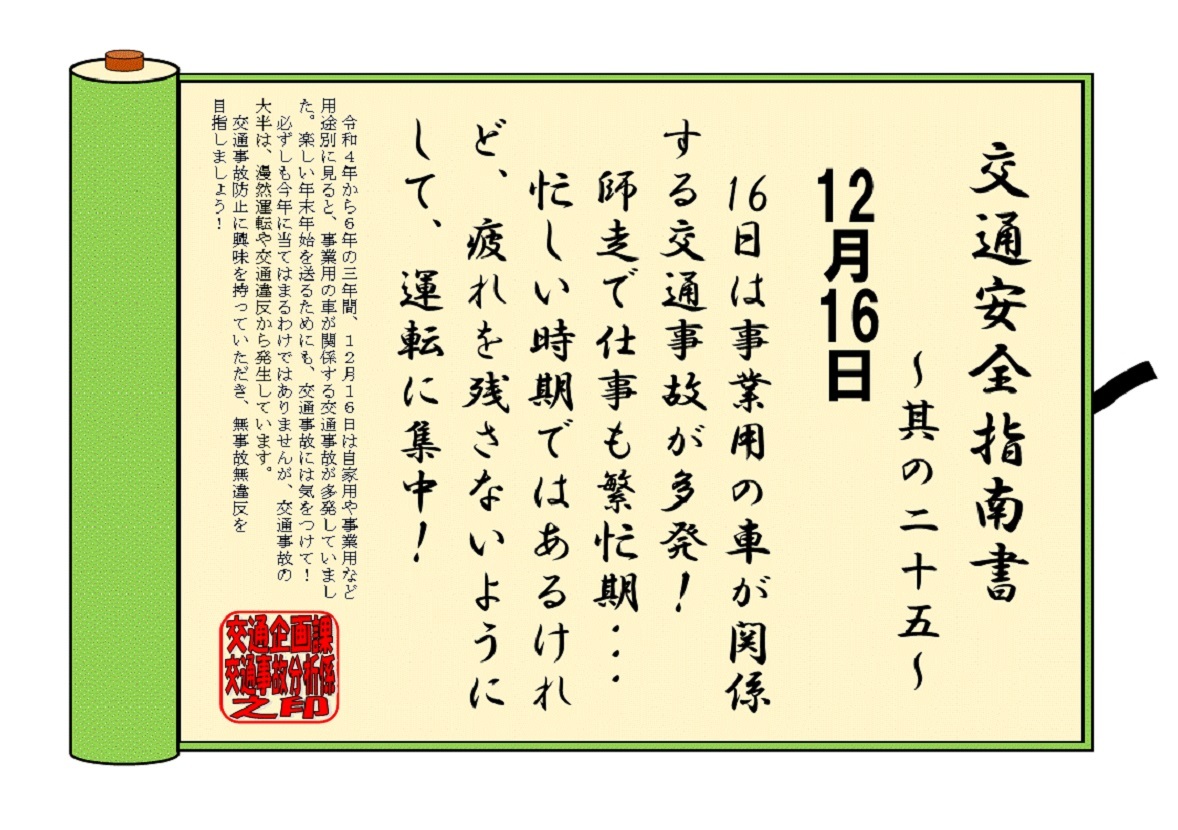 交通安全指南書
～其の二十五～
12月16日
16日は事業用の車が関係
する交通事故が多発！
師走で仕事も繁忙期・・・
忙しい時期ではあるけれ
ど、疲れを残さないように
して、運転に集中！
令和４年から６年の三年間、１２月１６日は自家用や事業用など
用途別に見ると、事業用の車が関係する交通事故が多発していまし
た。楽しい年末年始を送るためにも、交通事故には気をつけて！
必ずしも今年に当てはまるわけではありませんが、交通事故の
大半は、漫然運転や交通違反から発生しています。
交通事故防止に興味を持っていただき、無事故無違反を
目指しましょう！
交通企画課
交通事故分析係
之印